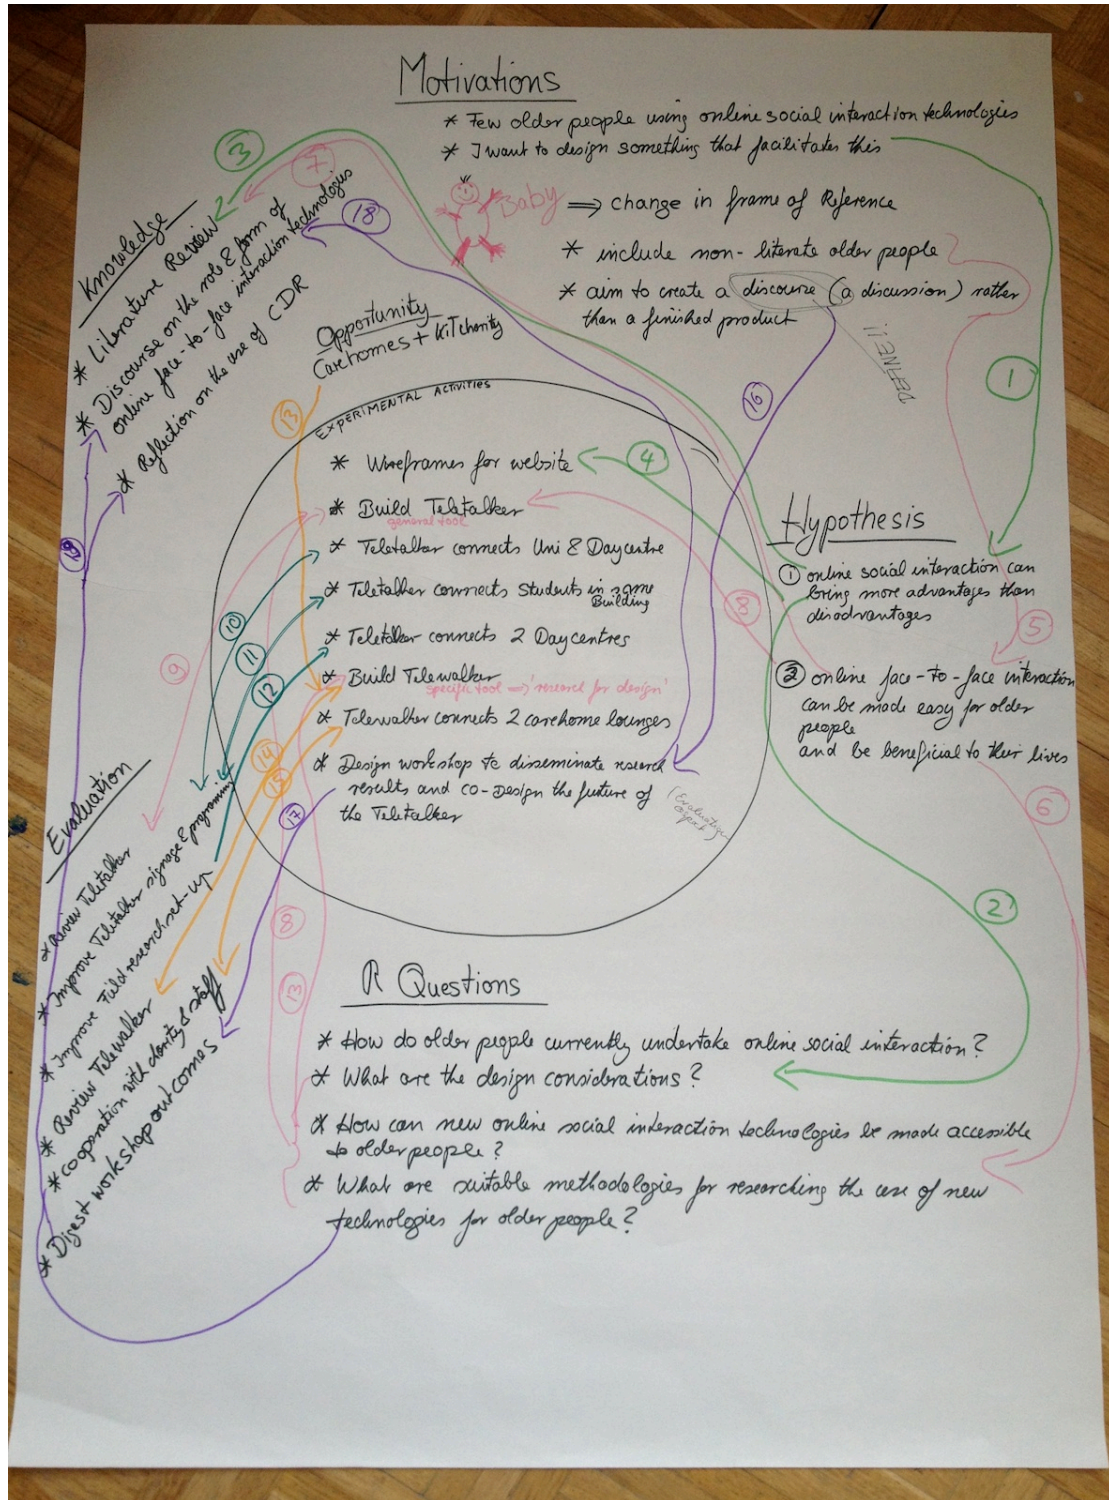 Motivations
* Few older people using online social interaction technologies
* I want to design something that facilitates this
Baby ⇒ change in frame of Reference
* include non-literate older people
* aim to create a discourse (a discussion) rather
than a finished product
DEFINE!!
Knowledge
* Literature Review
* Discourse on the role & form of
online face-to-face interaction technologies
* Reflection on the use of CDR
Opportunity
Carehomes + KiT charity
EXPERIMENTAL ACTIVITIES
* Wireframes for website
* Build Teletalker
general tool
* Teletalker connects Uni & Daycentre
* Teletalker connects students in same
Building
* Teletalker connects 2 Daycentres
* Build Telewalker
specific tool ⇒ 'research for design'
* Telewalker connects 2 carehome lounges
* Design workshop to disseminate research
results and co-Design the future of
the Teletalker
(Evaluation
Hypothesis
① online social interaction can
bring more advantages than
disadvantages
② online face-to-face interaction
can be made easy for older
people
and be beneficial to their lives
Evaluation
* Review Teletalker
* Improve Teletalker signage & programming
* Improve Field research set-up
* Review Telewalker
* cooperation with charity & staff
* Digest workshop outcomes
R Questions
* How do older people currently undertake online social interaction?
* What are the design considerations?
* How can new online social interaction technologies be made accessible
to older people?
* What are suitable methodologies for researching the use of new
technologies for older people?
1
2
3
4
5
6
7
8
8
9
10
11
12
13
13
14
15
16
17
18
19